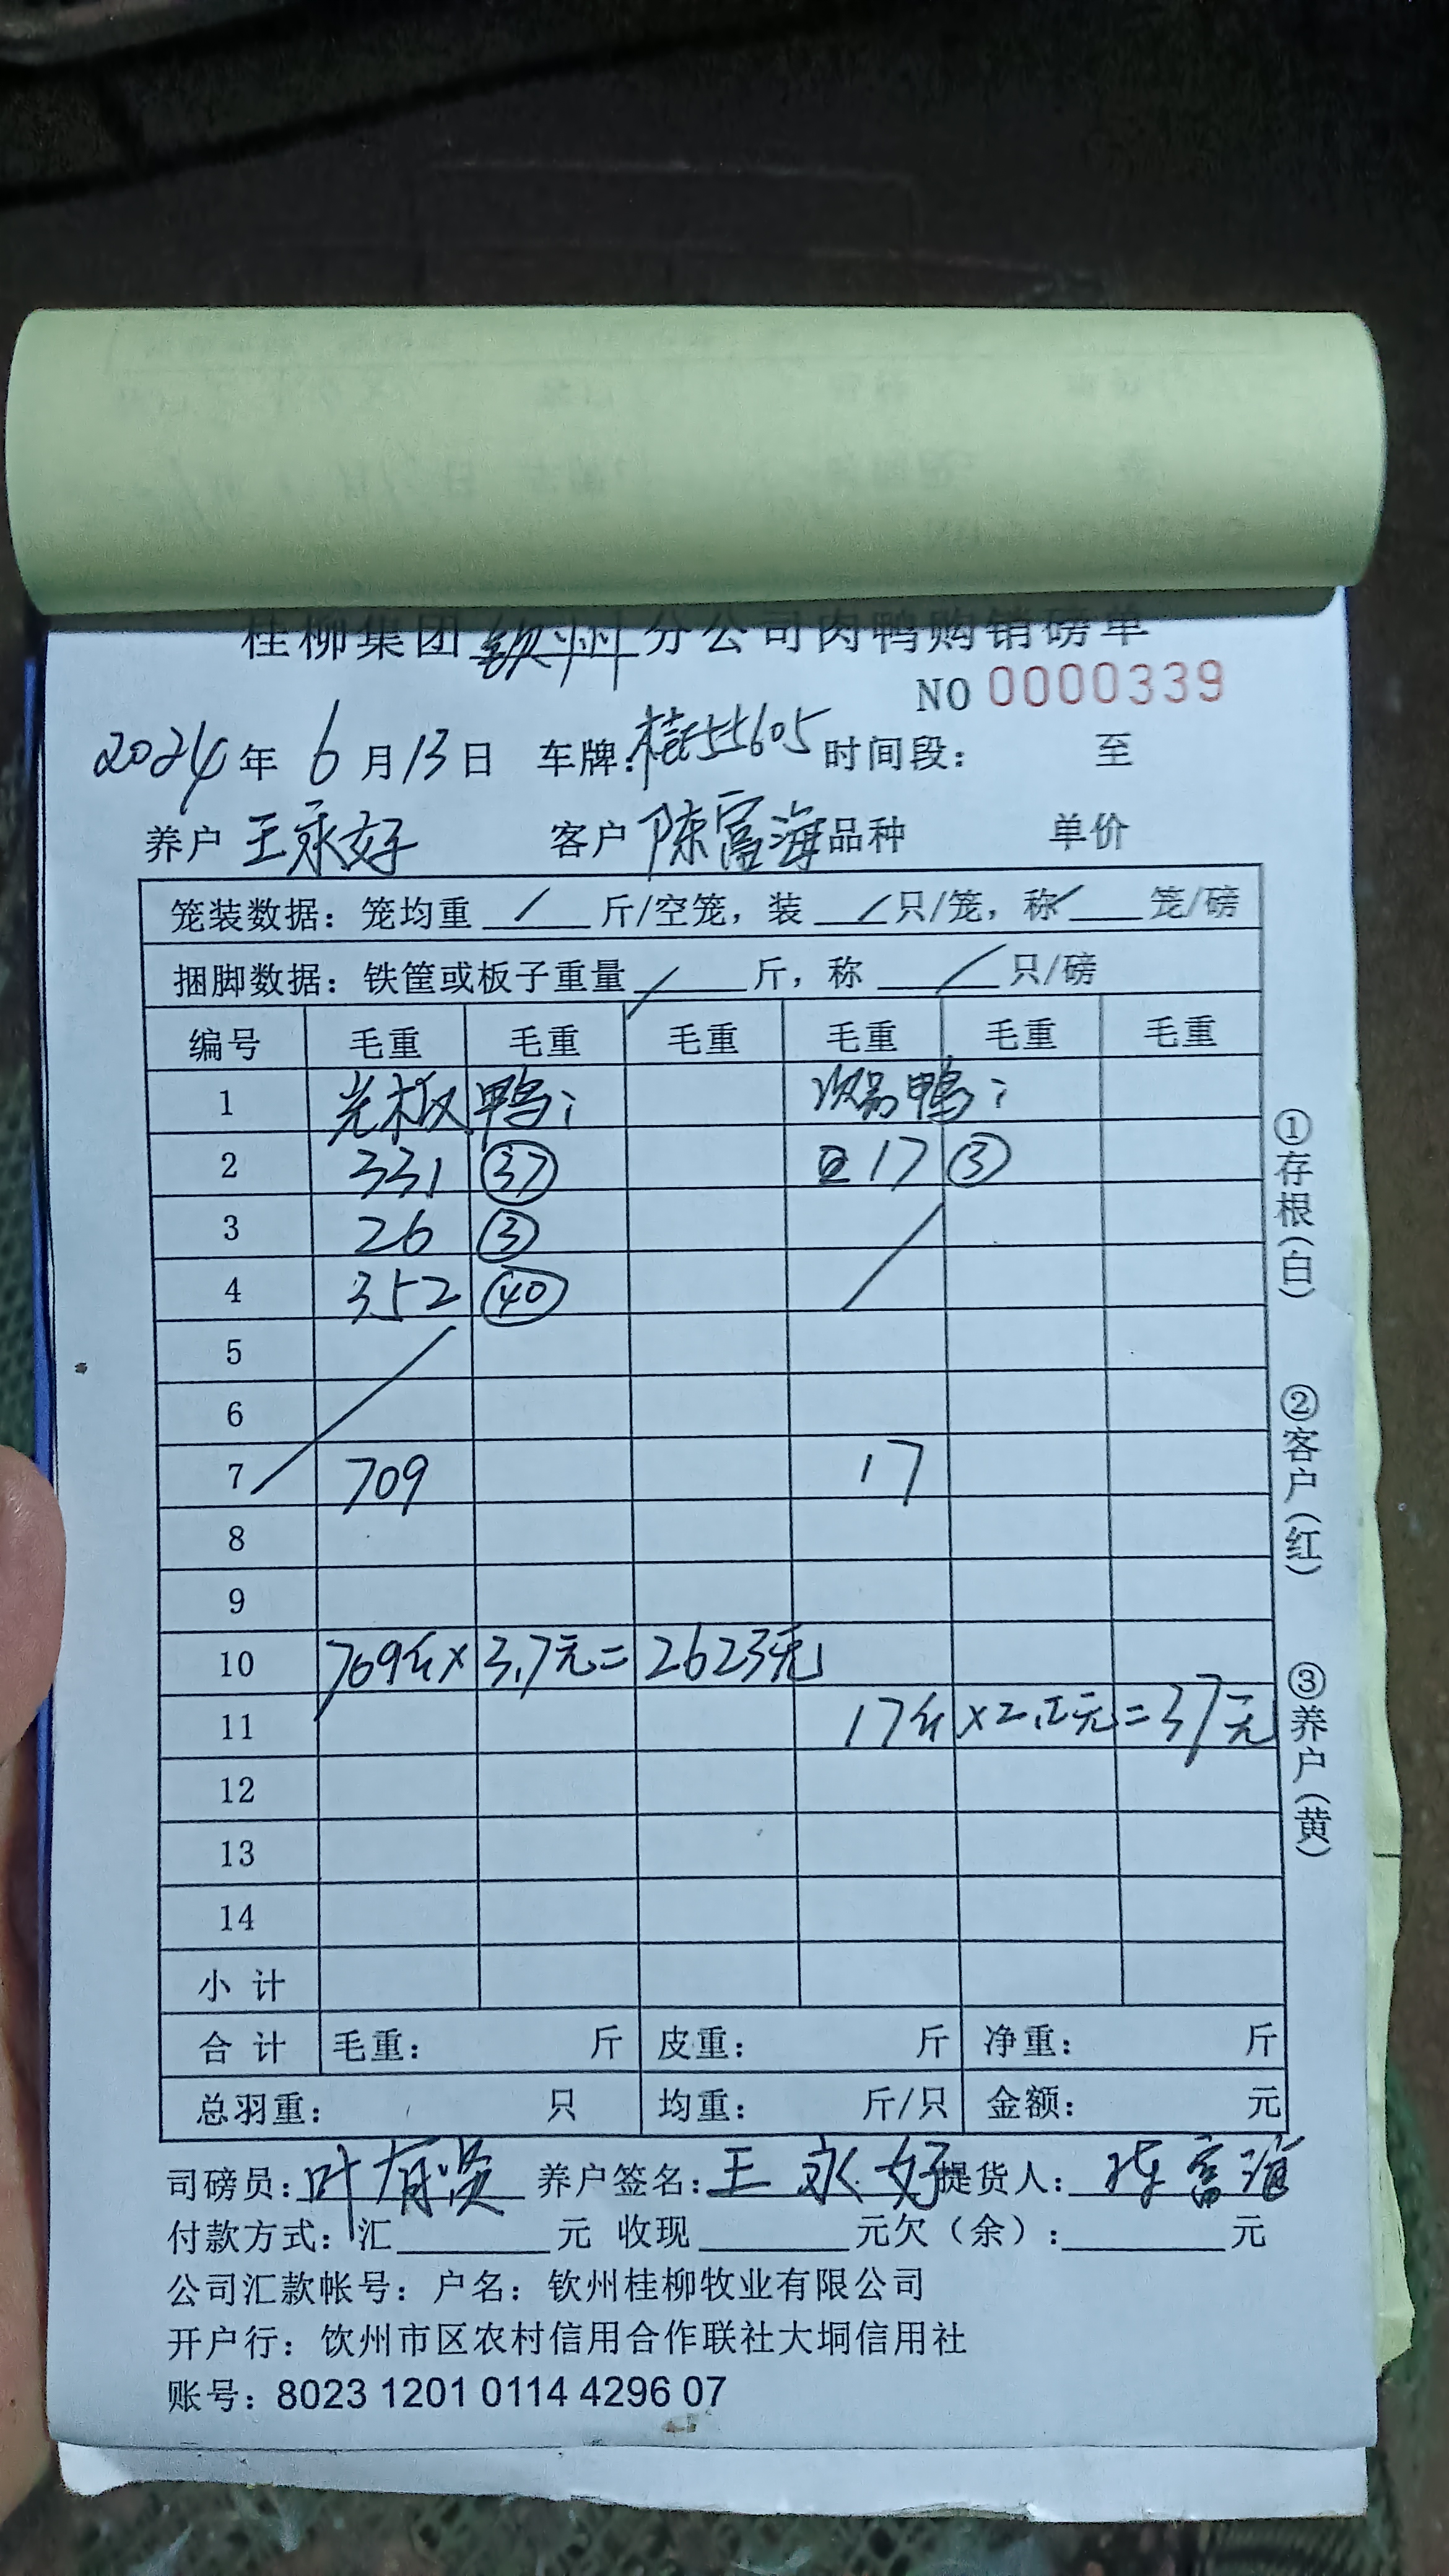 桂柳集团钦州分公司肉鸭购销磅单
NO 0000339
2024年 6月13日 车牌:桂E55605 时间段: 至
养户 王永好 客户 陈富海 品种 单价
笼装数据: 笼均重 / 斤/空笼, 装 / 只/笼, 称 / 笼/磅
捆脚数据: 铁筐或板子重量 / 斤, 称 / 只/磅
编号 毛重 毛重 毛重 毛重 毛重 毛重
1 光板鸭: 次品鸭:
2 331 ㊲ 17 ③
3 26 ③
4 352 ㊵
5
6
7 709 17
8
9
10 709斤× 3.7元= 2623元
11 17斤×2.2元=37元
12
13
14
小 计
合 计 毛重: 斤 皮重: 斤 净重: 斤
总羽重: 只 均重: 斤/只 金额: 元
司磅员: 叶有贤 养户签名: 王永好 提货人: 陈富海
付款方式: 汇 元 收现 元欠（余）: 元
公司汇款帐号: 户名: 钦州桂柳牧业有限公司
开户行: 钦州市区农村信用合作联社大垌信用社
账号: 8023 1201 0114 4296 07
①存根(白)
②客户(红)
③养户(黄)